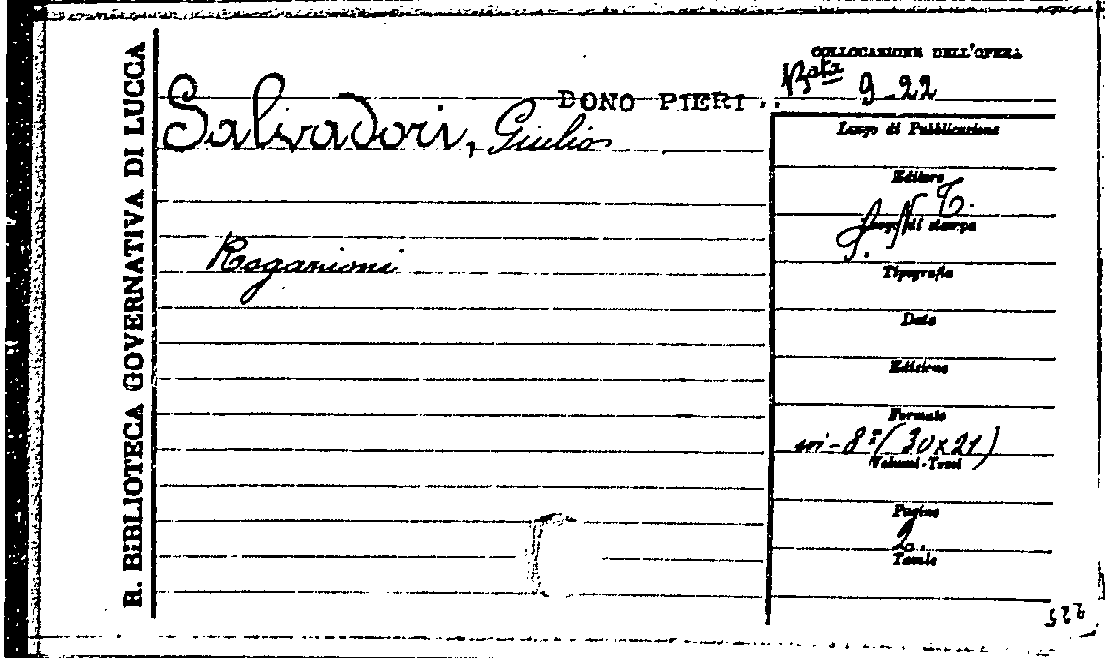 R. BIBLIOTECA GOVERNATIVA DI LUCCA
COLLOCAZIONE DELL'OPERA
Bta 9-22
DONO PIERI..
Salvadori, Giulio
Luogo di Pubblicazione
Editore
S. N. T.
Luogo di stampa
Rogazioni
Tipografia
Data
Edizione
Formato
in-8° (30x21)
Volumi-Tomi
Pagine
2.
Tavole
225